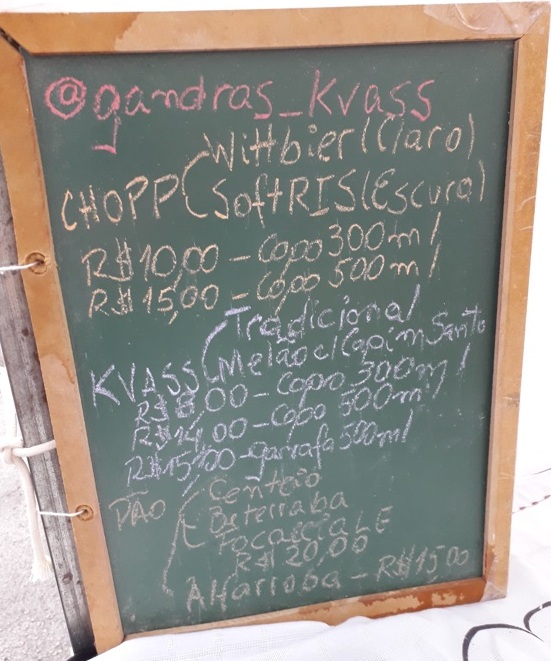 @gandras_kvass
Wittbier (Claro)
CHOPP Soft RIS (Escura)
R$10,00 - Copo 300ml
R$15,00 - Copo 500ml
Tradicional
KVASS Melão c/ Capim Santo
R$8,00 - Copo 300ml
R$14,00 - Copo 500ml
R$15,00 - garrafa 500ml
PÃO Centeio
Beterraba
Focaccia LE
R$20,00
Alfarroba - R$15,00